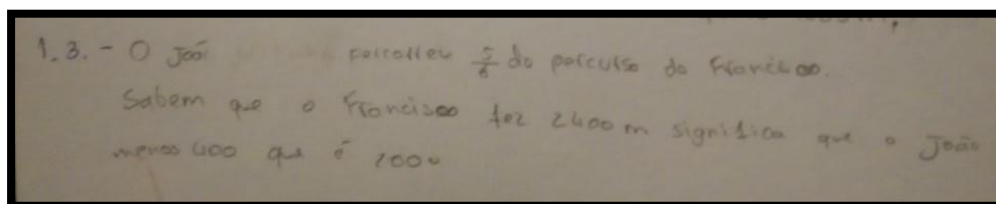 1.3. - O Joã percorreu 5/6 do percurso do Francisco.
Sabem que o Francisco fez 2400 m significa que o João
menos 400 que é 2000